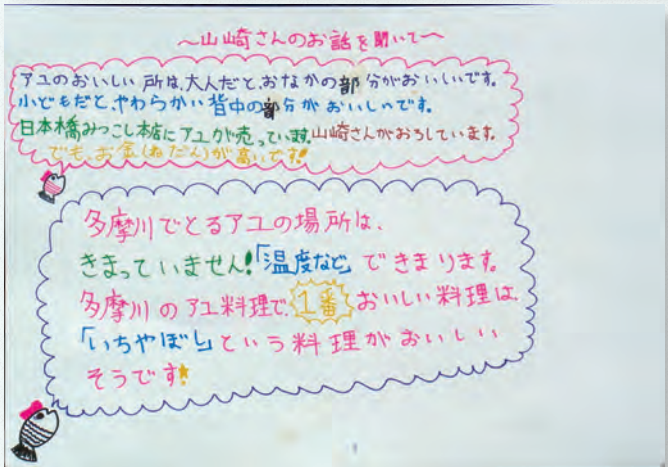 ～山崎さんのお話を聞いて～
アユのおいしい所は、大人だと、おなかの部分がおいしいです。
小どもだと、やわらかい背中の部分がおいしいです。
日本橋みつこし本店にアユが売っています。山崎さんがおろしています。
でも、お金(ねだん)が高いです!
多摩川でとるアユの場所は、
きまっていません!「温度など」できまります。
多摩川のアユ料理で、1番おいしい料理は、
「いちやぼし」という料理がおいしい
そうです!